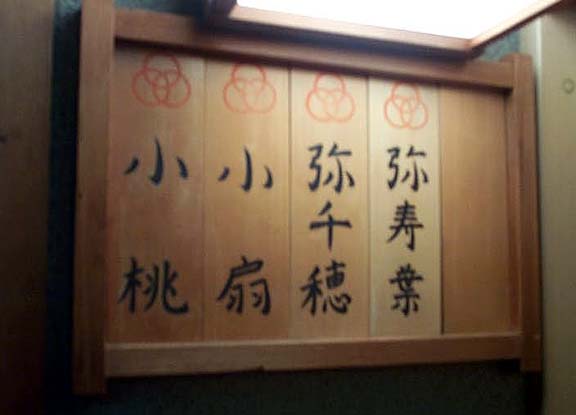 弥寿葉
弥千穂
小扇
小桃